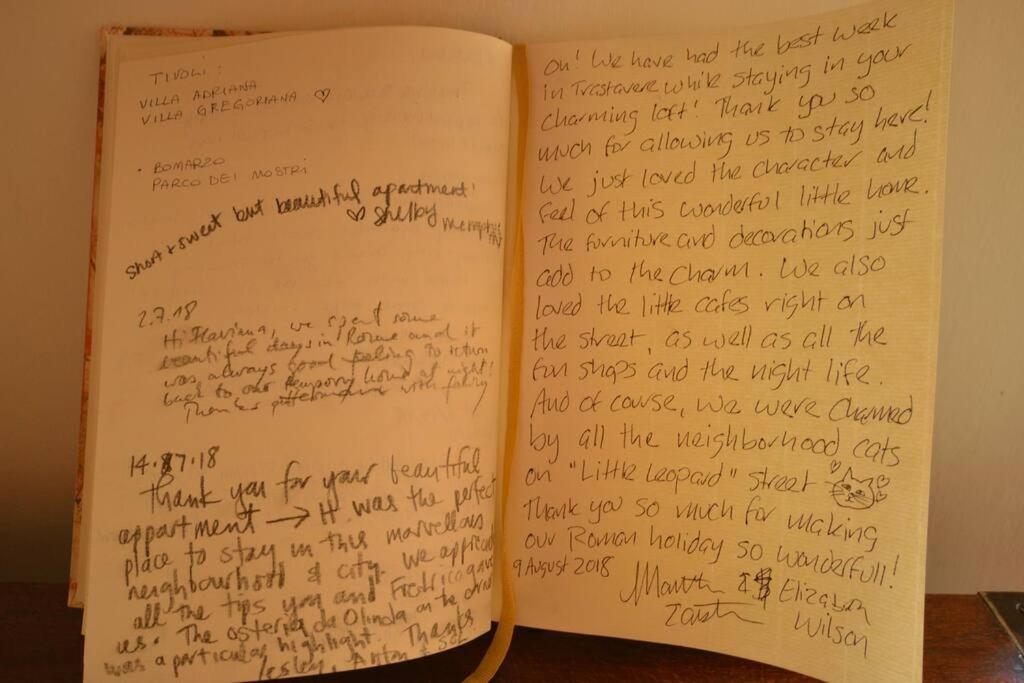 TIVOLI:
VILLA ADRIANA
VILLA GREGORIANA ♡
• BOMARZO
PARCO DEI MOSTRI
Short & sweet but beautiful apartment!
♡ Shelby
2.7.18
Hi Flaviana, we spent some
beautiful days in Rome and it
was always good feeling to return
back to our temporary home at night!
Thanks
14.7.18
Thank you for your beautiful
appartment → It was the perfect
place to stay in this marvellous
neighbourhood & city. We
all the tips you and
us. The osteria da Olinda on the
was a particular highlight. Thanks
Lesley, Anton &
Oh! We have had the best week
in Trastavere while staying in your
charming loft! Thank you so
much for allowing us to stay here!
We just loved the character and
feel of this wonderful little home.
The furniture and decorations just
add to the charm. We also
loved the little cafes right on
the street, as well as all the
fun shops and the night life.
And of course, we were charmed
by all the neighborhood cats
on "Little Leopard" street
Thank you so much for making
our Roman holiday so wonderfull!
9 August 2018
Elizabeth
Wilson